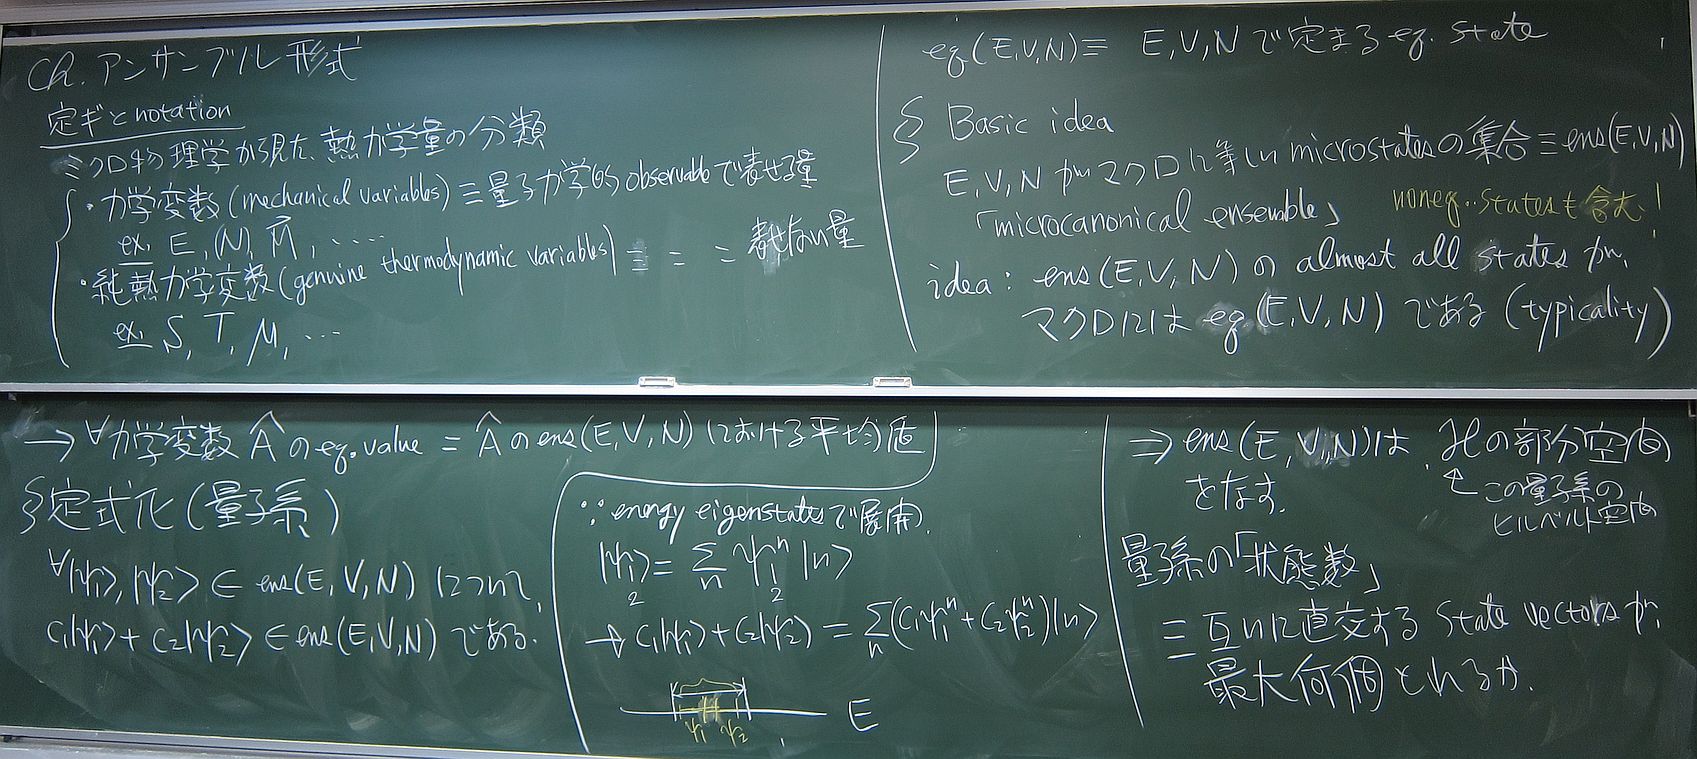 Ch. アンサンブル形式
定ギとnotation
ミクロ物理学から見た、熱力学量の分類
・力学変数(mechanical variables)≡量子力学的observableで表せる量
ex. E, (N), M⃗, ‥‥
・純熱力学変数(genuine thermodynamic variables) ≡ 〃 〃 表せない量
ex. S, T, μ, …
eq(E,V,N)≡ E,V,Nで定まるeq. state
§ Basic idea
E,V,Nがマクロに等しいmicrostatesの集合≡ens(E,V,N)
「microcanonical ensemble」 noneq. statesも含む!
idea: ens(E,V,N)のalmost all statesが、
マクロには eq.(E,V,N)である(typicality)
→ ∀力学変数Âのeq.value = Âのens(E,V,N)における平均値
§定式化(量子系)
∀|ψ₁>,|ψ₂> ∈ ens(E,V,N)について、
c₁|ψ₁>+c₂|ψ₂> ∈ens(E,V,N)である.
∵ energy eigenstatesで展開.
|ψ₁₂>= Σn ψ₁₂ⁿ |n>
→ c₁|ψ₁>+c₂|ψ₂> = Σn(c₁ψ₁ⁿ+c₂ψ₂ⁿ)|n>
E
ψ₁ ψ₂
⇒ ens(E,V,N)は、ℋの部分空間
をなす.
この量子系の
ヒルベルト空間
量子系の「状態数」
≡ 互いに直交するstate vectorsが、
最大何個とれるか.